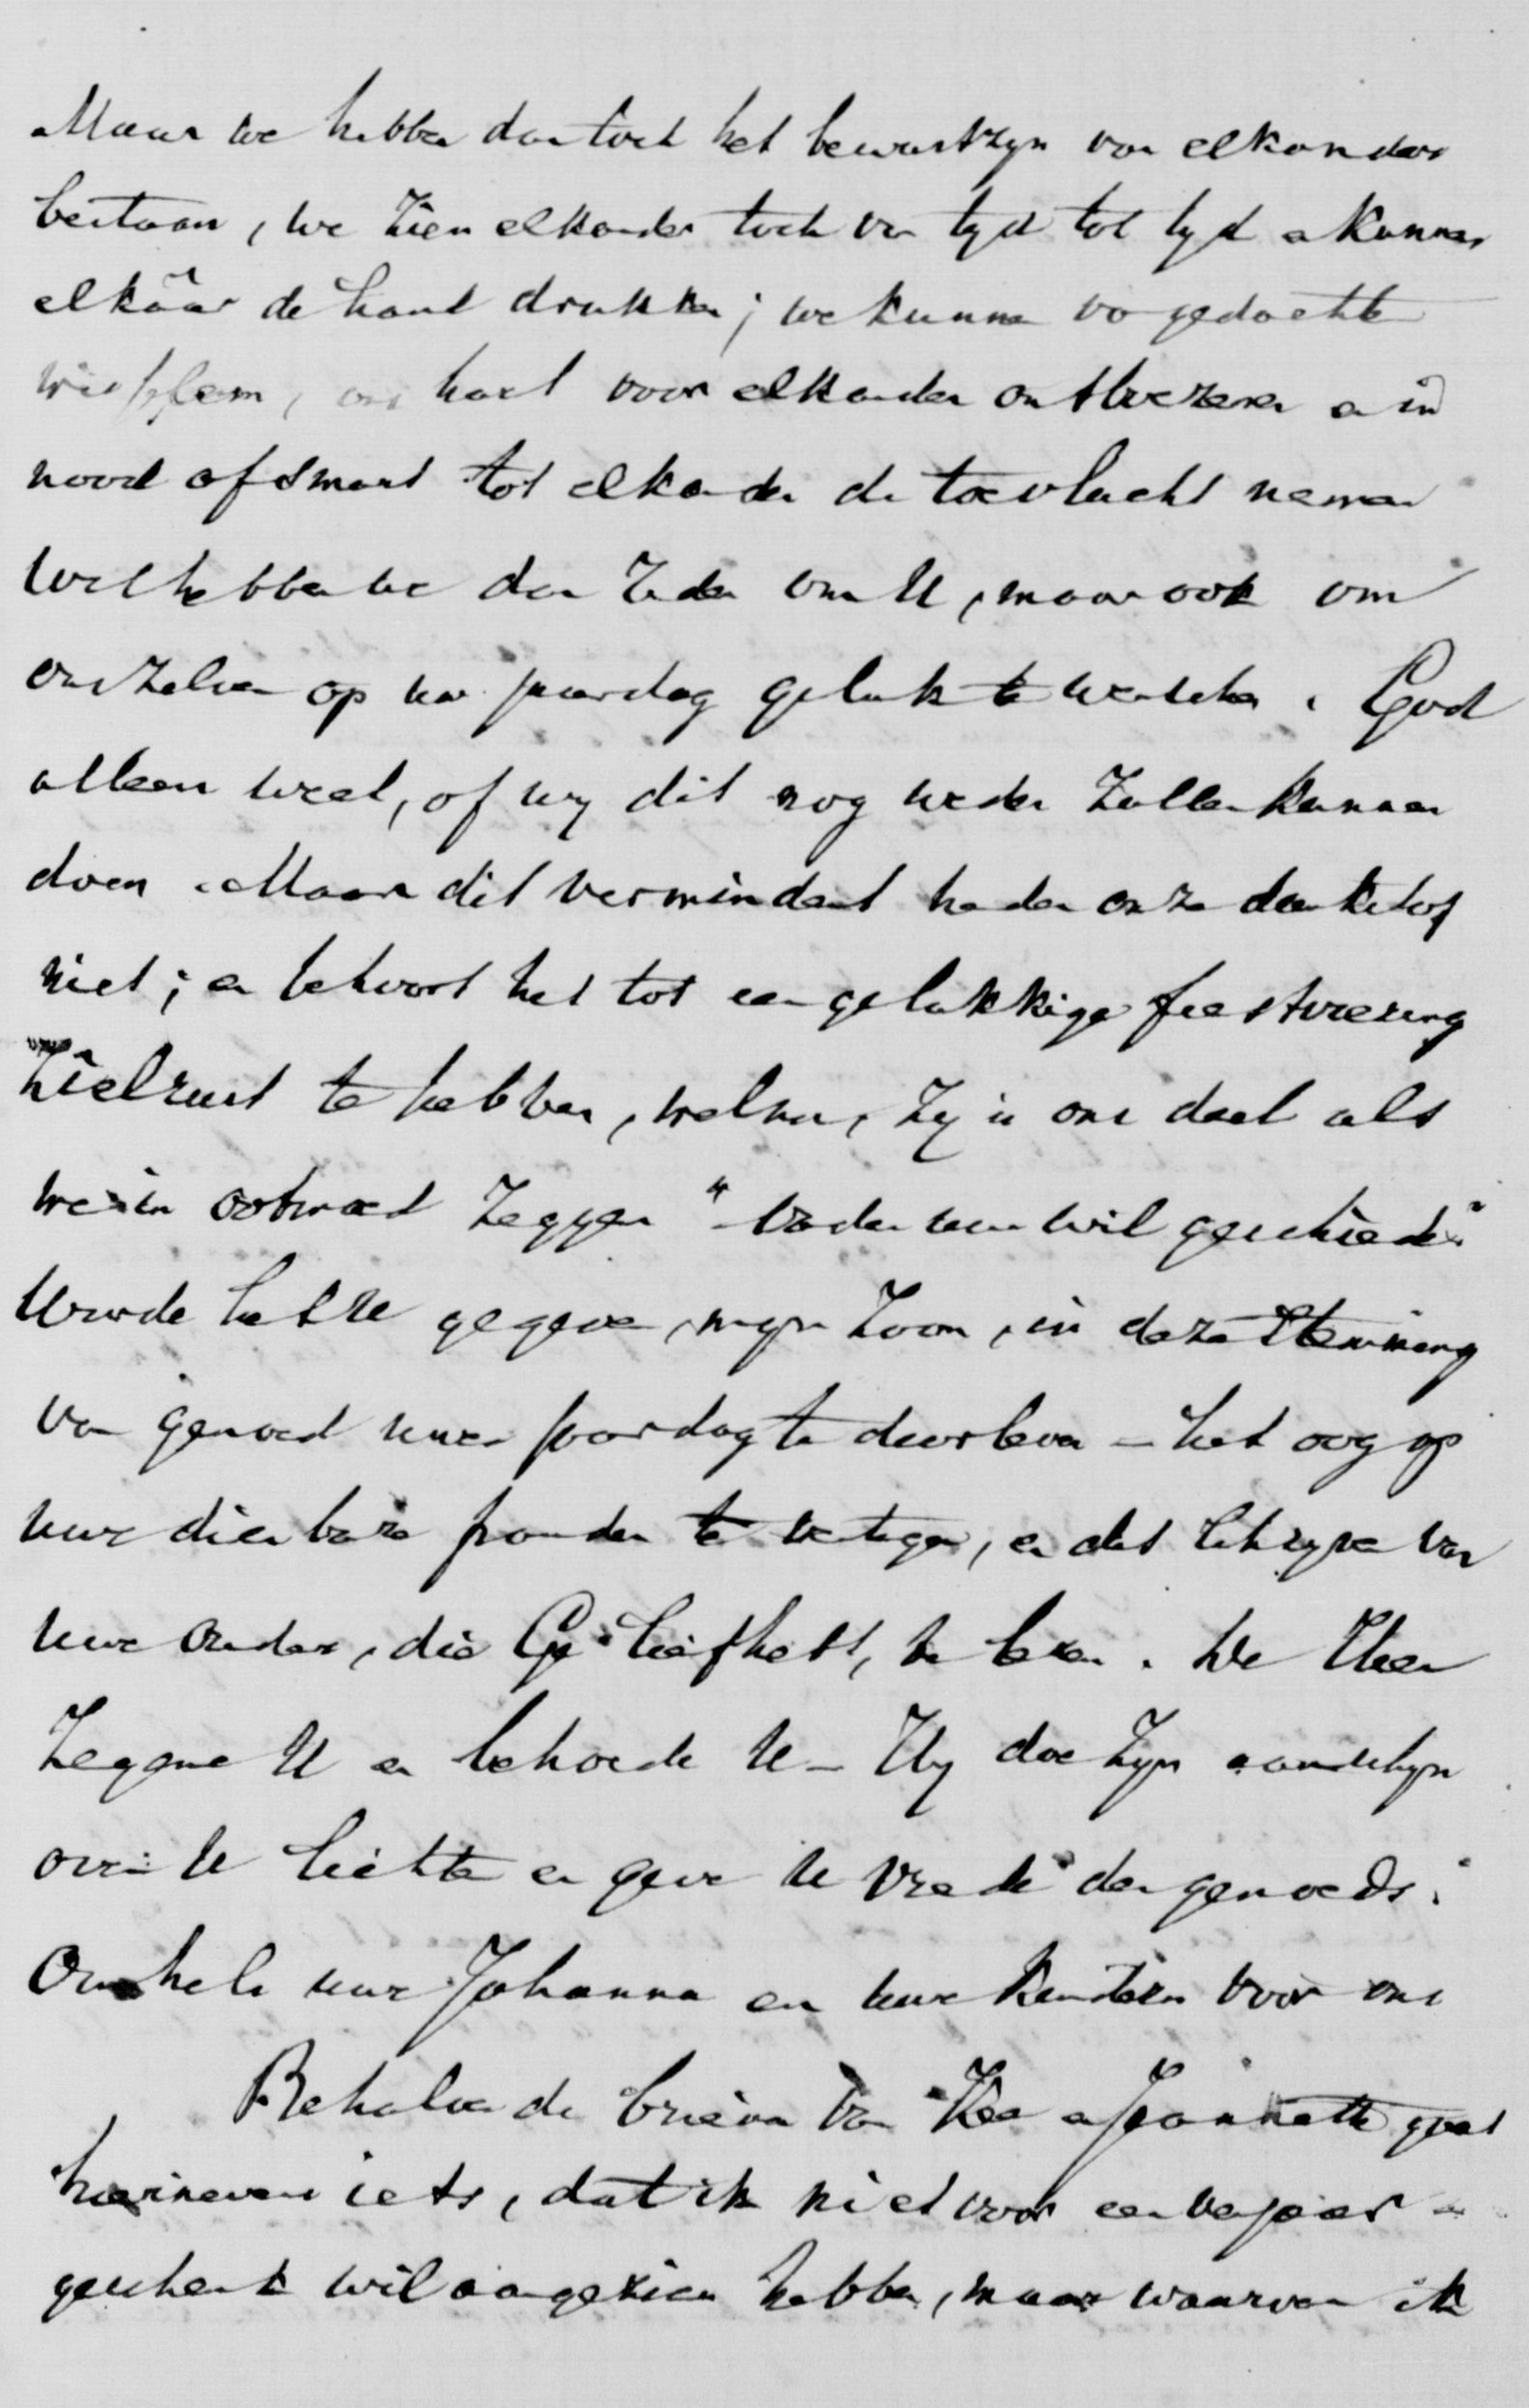 Maar we hebben dan toch het bewustzyn van elkanders
bestaan, we zien elkander toch van tyd tot tyd en kunnen
elkâar de hand drukken; we kunnen van gedachte
wisselen, ons hart voor elkander ontboezemen en in
nood of smart tot elkander de toevlucht nemen
Wel hebben we dan reden om U, maar ook om
ons zelven op uw jaardag geluk te wenschen. God
alleen weet, of wy dit nog weder zullen kunnen
doen. Maar dit vermindert heden onze dankstof
niet; en behoort het tot een gelukkige feestviering
zielrust te hebben, welnu, zy is ons deel als
we in ootmoed zeggen "Vader uw wil geschiede"
Worde het U gegeven, myn Zoon, in deze stemming
van gemoed uwen jaardag te doorleven - het oog op
uwe dierbare panden te vestigen, en dit schryven van
uwe ouders, die Gy liefhebt, te lezen. De Heer
zegene U en behoede U - Hy doe Zyn aanschyn
over U lichten en geve U vrede des gemoeds.
Omhels uwe Johanna en uwe kinderen voor ons
Behalve de brieven van Kee en Jeannette gaat
hiernevens iets, dat ik niet voor een verjaar-
geschenk wil aangezien hebben, maar waarvan ik